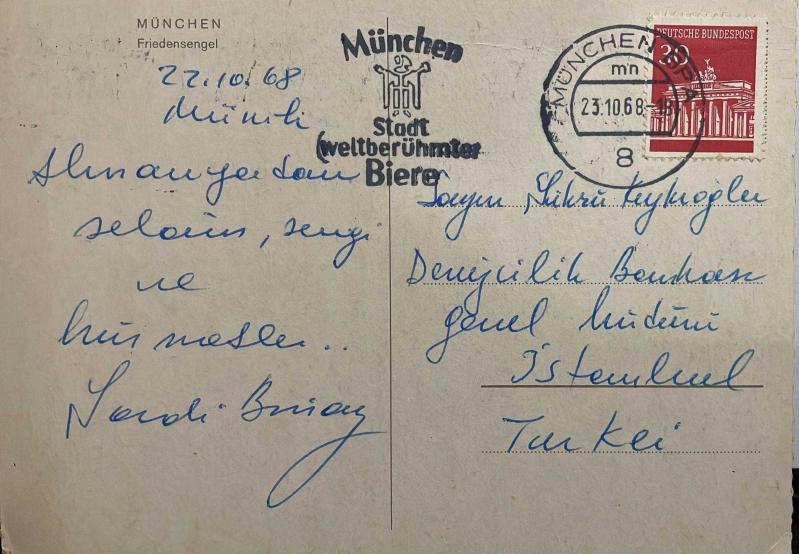 MÜNCHEN
Friedensengel
22.10.68
Münih
Almanyadan
selam, sevgi
ve
hürmetler..
München
Stadt
(weltberühmter
Biere
MÜNCHEN
mn
23.10.68-18
8
DEUTSCHE BUNDESPOST
30
Sayın Şükrü
Denizcilik Bankası
genel müdürü
İstanbul
Türkei